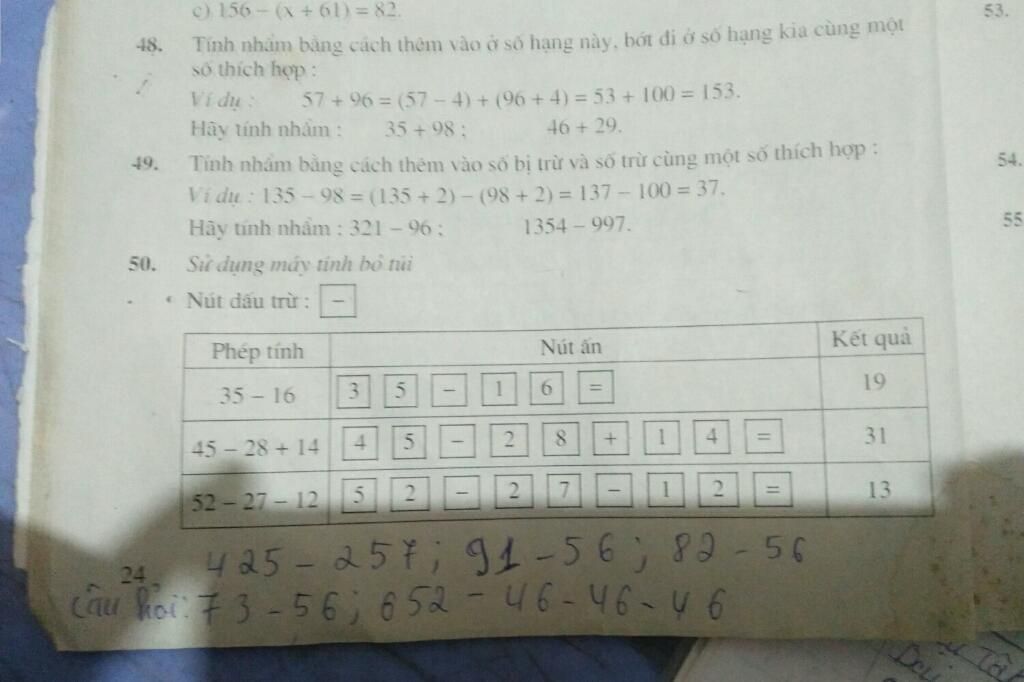 c) 156 – (x + 61) = 82.
53.
48. Tính nhẩm bằng cách thêm vào ở số hạng này, bớt đi ở số hạng kia cùng một
số thích hợp :
Ví dụ : 57 + 96 = (57 – 4) + (96 + 4) = 53 + 100 = 153.
Hãy tính nhẩm : 35 + 98 ; 46 + 29.
49. Tính nhẩm bằng cách thêm vào số bị trừ và số trừ cùng một số thích hợp :
54.
Ví dụ : 135 – 98 = (135 + 2) – (98 + 2) = 137 – 100 = 37.
Hãy tính nhẩm : 321 – 96 ; 1354 – 997.
55
50. Sử dụng máy tính bỏ túi
Nút dấu trừ : –
Phép tính Nút ấn Kết quả
35 – 16 3 5 – 1 6 = 19
45 – 28 + 14 4 5 – 2 8 + 1 4 = 31
52 – 27 – 12 5 2 – 2 7 – 1 2 = 13
425 – 257 ; 91 – 56 ; 82 – 56
24
Câu hỏi: 73 – 56 ; 652 – 46 – 46 – 46